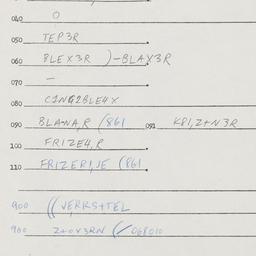 040 0
050 TEP3R
060 BLEX3R )-BLAX3R
070 -
080 C1NG2BLE4X
090 BLANA,R (861 091 K81,Z+N3R
100 FRIZE4,R
110 FRIZER1,JE (861
900 ((VERKS+TEL
900 Z+0V3RN (/068010